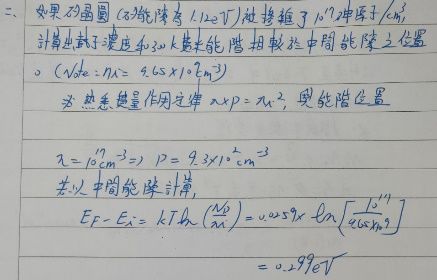 二、如果矽晶圓(矽能隙為1.12eV)被摻雜了10¹⁷砷原子/cm³
計算出載子濃度和300K費米能階相較於中間能隙之位置
。(Note: ni = 9.65×10⁹cm⁻³)
必熟悉質量作用定律 n×p=ni², 與能階位置
n=10¹⁷cm⁻³ => p = 9.3×10² cm⁻³
若以中間能隙計算,
EF-Ei = kT ln(ND/ni) = 0.0259× ln[10¹⁷/9.65×10⁹]
= 0.299eV